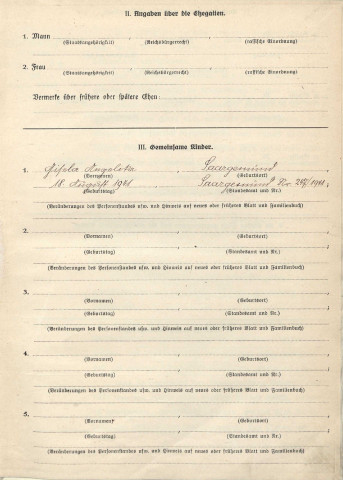 II. Angaben über die Ehegatten.
1. Mann
(Staatsangehörigkeit) (Reichsbürgerrecht) (rassische Einordnung)
2. Frau
(Staatsangehörigkeit) (Reichsbürgerrecht) (rassische Einordnung)
Vermerke über frühere oder spätere Ehen:
III. Gemeinsame Kinder.
1. Gisela Angelika Saargemünd
(Vornamen) (Geburtsort)
18. August 1941 Saargemünd Nr. 247/1941.
(Geburtstag) (Standesamt und Nr.)
(Veränderungen des Personenstandes usw. und Hinweis auf neues oder früheres Blatt und Familienbuch)
2.
(Vornamen) (Geburtsort)
(Geburtstag) (Standesamt und Nr.)
(Veränderungen des Personenstandes usw. und Hinweis auf neues oder früheres Blatt und Familienbuch)
3.
(Vornamen) (Geburtsort)
(Geburtstag) (Standesamt und Nr.)
(Veränderungen des Personenstandes usw. und Hinweis auf neues oder früheres Blatt und Familienbuch)
4.
(Vornamen) (Geburtsort)
(Geburtstag) (Standesamt und Nr.)
(Veränderungen des Personenstandes usw. und Hinweis auf neues oder früheres Blatt und Familienbuch)
5.
(Vornamen) (Geburtsort)
(Geburtstag) (Standesamt und Nr.)
(Veränderungen des Personenstandes usw. und Hinweis auf neues oder früheres Blatt und Familienbuch)